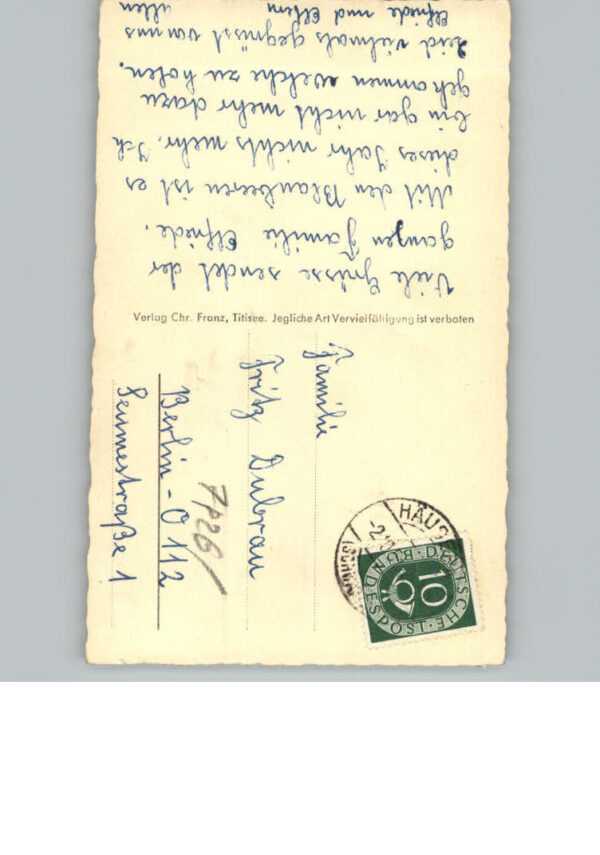 Viele Grüsse sendet der
ganzen Familie Elfriede.
Mit den Blaubeeren ist es
dieses Jahr nichts mehr. Ich
bin gar nicht mehr dazu
gekommen welche zu holen.
Seid vielmals gegrüsst von uns
allen
Elfriede und Eltern
Verlag Chr. Franz, Titisee. Jegliche Art Vervielfältigung ist verboten
Familie
Fritz Dubrau
Berlin-O 112
Seumestraße 1
HÄUS
(SCHW
DEUTSCHE
BUNDESPOST
10